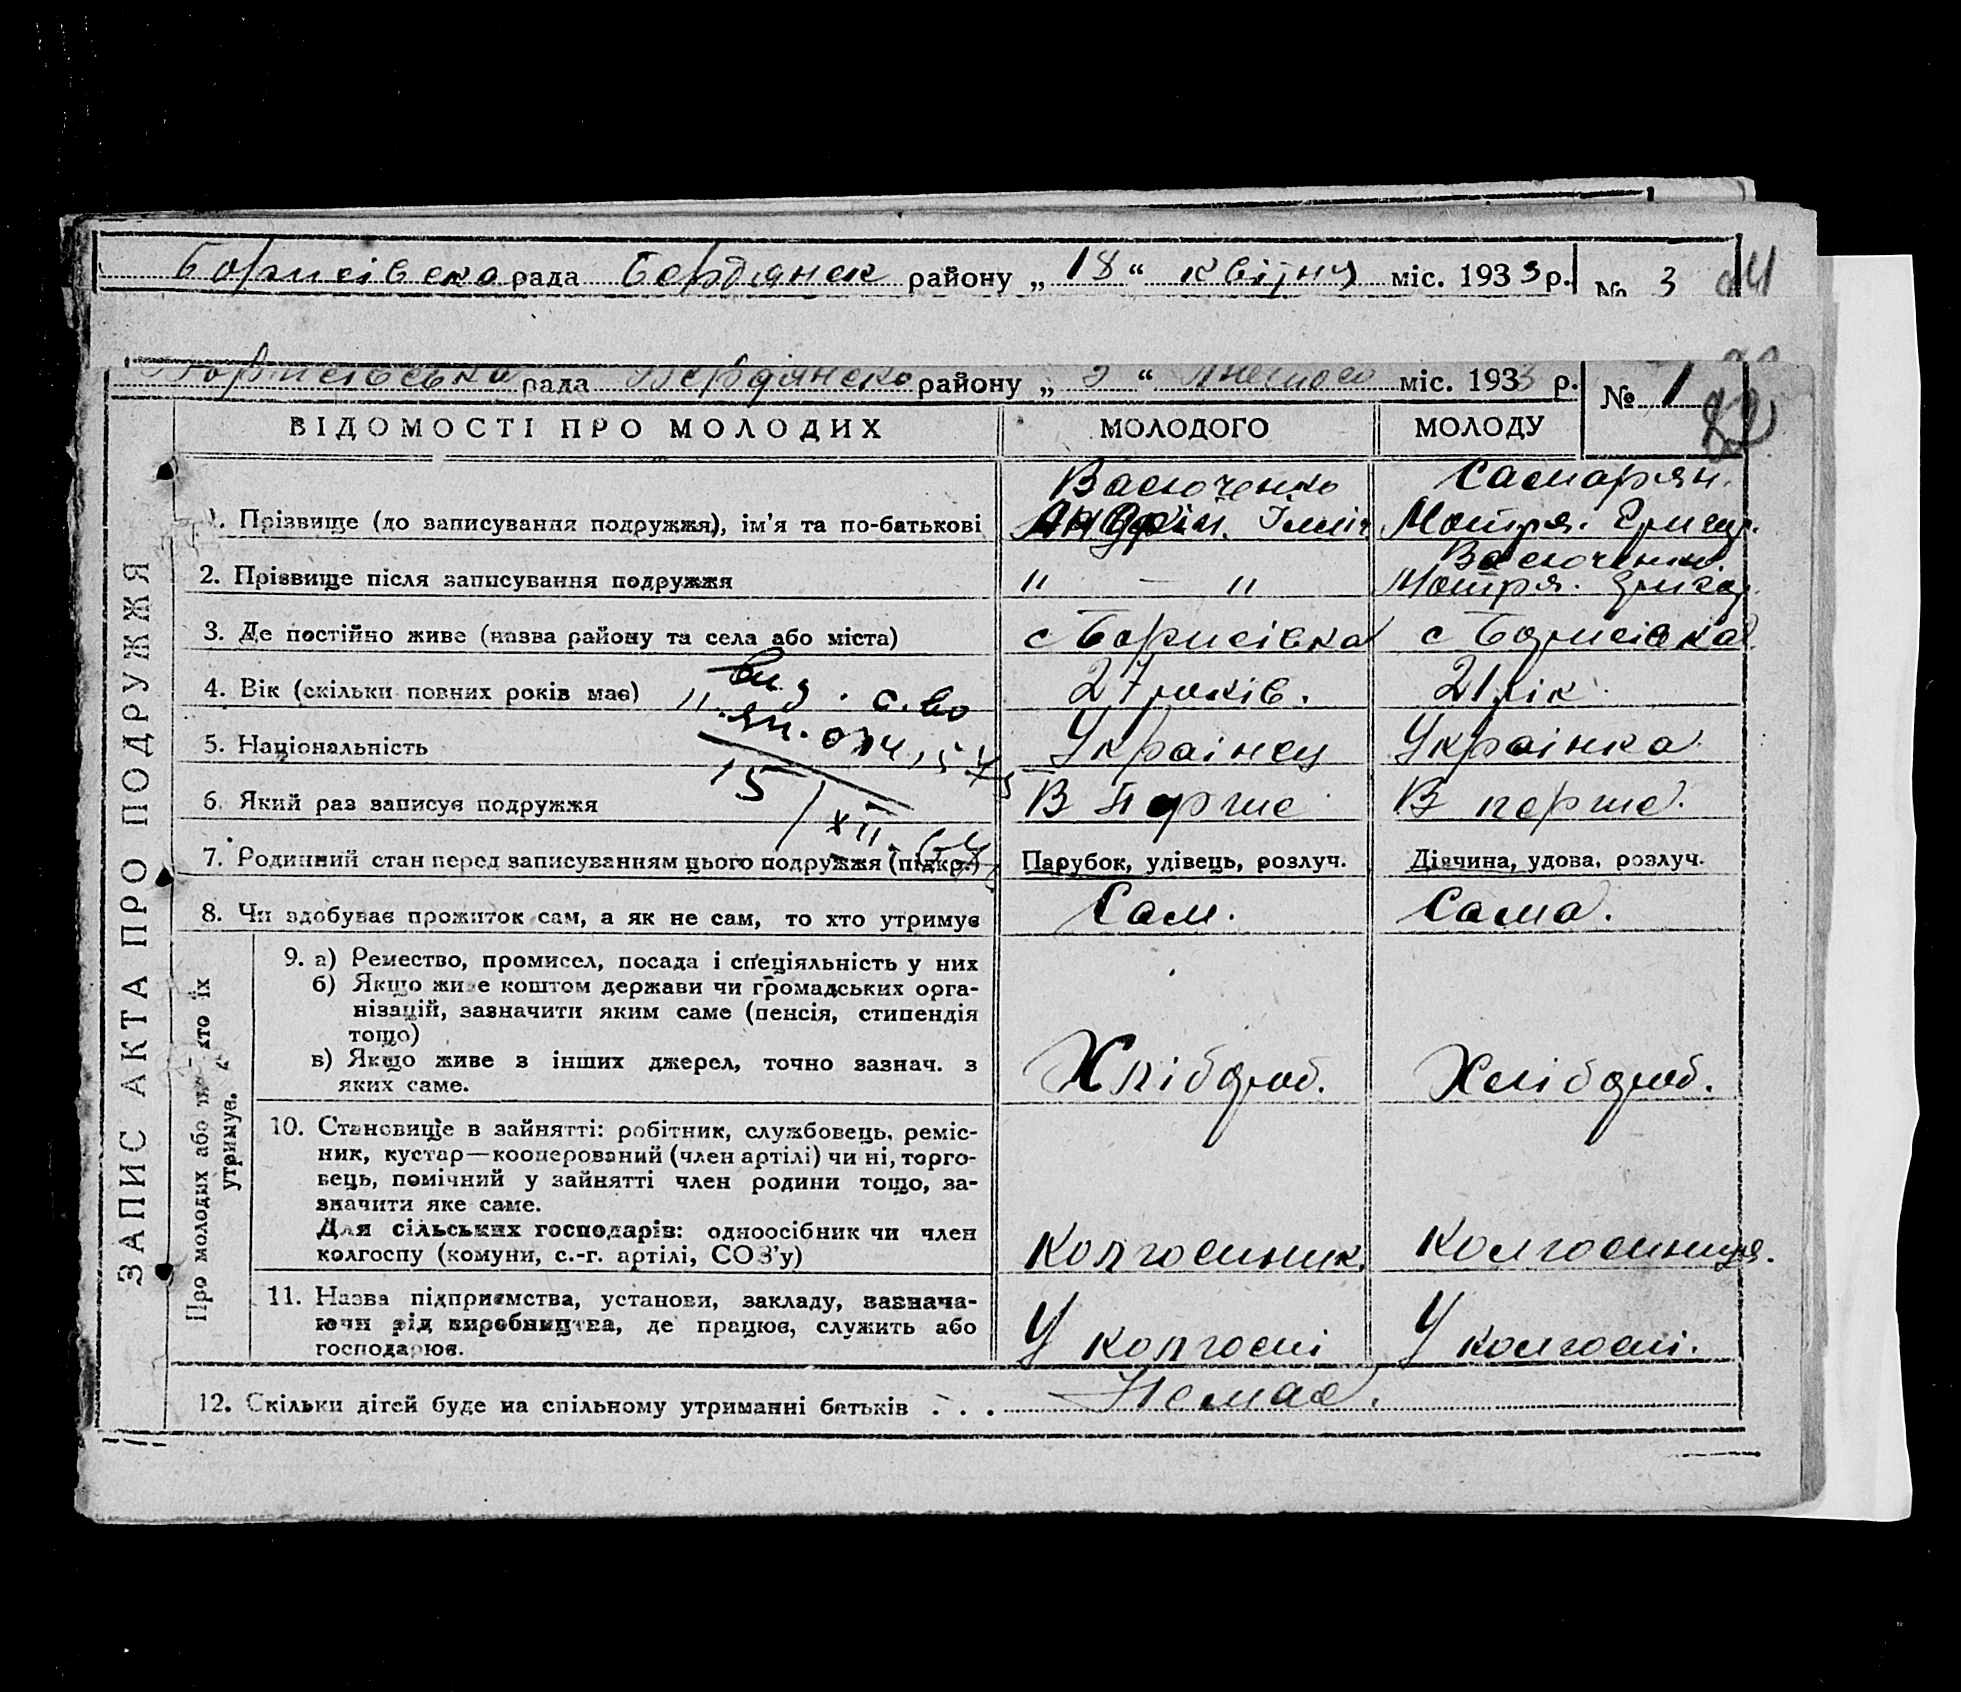 Борисівска рада Бердянск району „ 18 “ квітня міс. 1933 р. № 3
Борисівська рада Бердянско району „ 2 “ лютого міс. 1933 р. № 1
82
ВІДОМОСТІ ПРО МОЛОДИХ МОЛОДОГО МОЛОДУ
ЗАПИС АКТА ПРО ПОДРУЖЖЯ
Васюченко Самарян.
1. Прізвище (до записування подружжя), ім’я та по-батькові Ілліч Мотря. Григор.
Васюченко
2. Прізвище після записування подружжя " — " Мотря. Григор.
3. Де постійно живе (назва району та села або міста) с Борисівка с Борисівка
4. Вік (скільки повних років має) 27 років. 21 рік.
вид. с.во
5. Національність Украінец Украінка
15/XII.
6. Який раз записує подружжя В перше В перше.
7. Родинний стан перед записуванням цього подружжя (підкр.) Парубок, удівець, розлуч. Дівчина, удова, розлуч.
8. Чи здобуває прожиток сам, а як не сам, то хто утримує Сам. Сама.
Про молодих або хто їх утримує.
9. а) Ремество, промисел, посада і спеціяльність у них
б) Якщо живе коштом держави чи громадських орга-
нізацій, зазначити яким саме (пенсія, стипендія
тощо)
в) Якщо живе з інших джерел, точно зазнач. з
яких саме.
Хлібороб. Хлібороб.
10. Становище в зайнятті: робітник, службовець, реміс-
ник, кустар—кооперований (член артілі) чи ні, торго-
вець, помічний у зайнятті член родини тощо, за-
значити яке саме.
Для сільських господарів: одноосібник чи член
колгоспу (комуни, с.-г. артілі, СОЗ’у)
Колгоспник. Колгоспниця.
11. Назва підприємства, установи, закладу, зазнача-
ючи рід виробництва, де працює, служить або
господарює.
У колгоспі У колгоспі.
12. Скільки дітей буде на спільному утриманні батьків . . . Немає.